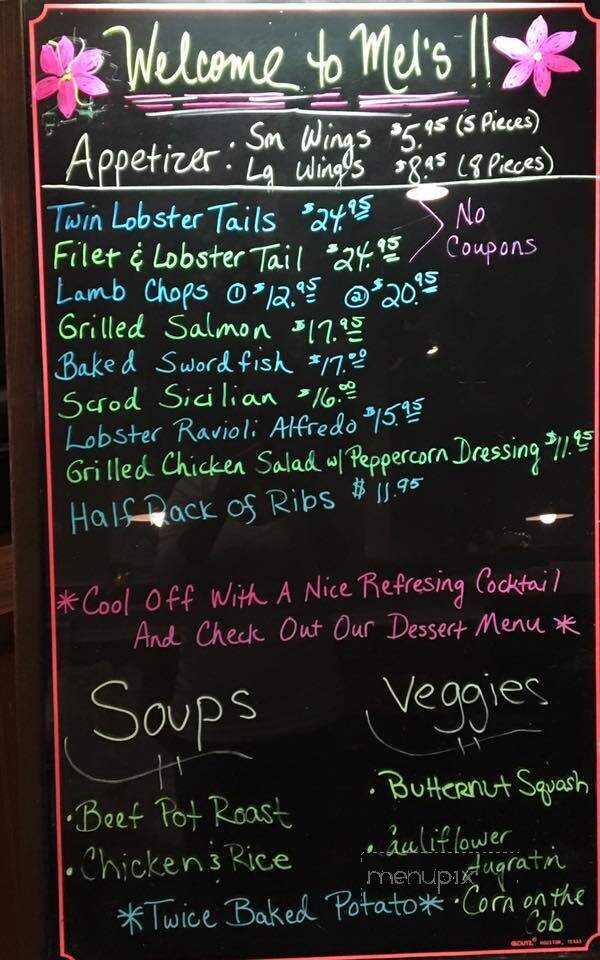 Welcome to Mel's !!
Appetizer: Sm Wings $5.95 (5 Pieces)
Lg Wings $8.95 (8 Pieces)
Twin Lobster Tails $24.95
Filet & Lobster Tail $24.95
No
Coupons
Lamb Chops ① $12.95 ② $20.95
Grilled Salmon $17.95
Baked Swordfish $17.00
Scrod Sicilian $16.00
Lobster Ravioli Alfredo $15.95
Grilled Chicken Salad w/ Peppercorn Dressing $11.95
Half Rack of Ribs $11.95
*Cool Off With A Nice Refresing Cocktail
And Check Out Our Dessert Menu *
Soups
• Beef Pot Roast
• Chicken & Rice
Veggies
• Butternut Squash
• Cauliflower
Augratin
• Corn on the
Cob
*Twice Baked Potato*
menupix
HOUSTON, TEXAS